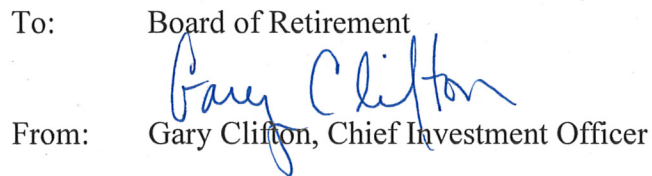 To: Board of Retirement
Gary Clifton
From: Gary Clifton, Chief Investment Officer